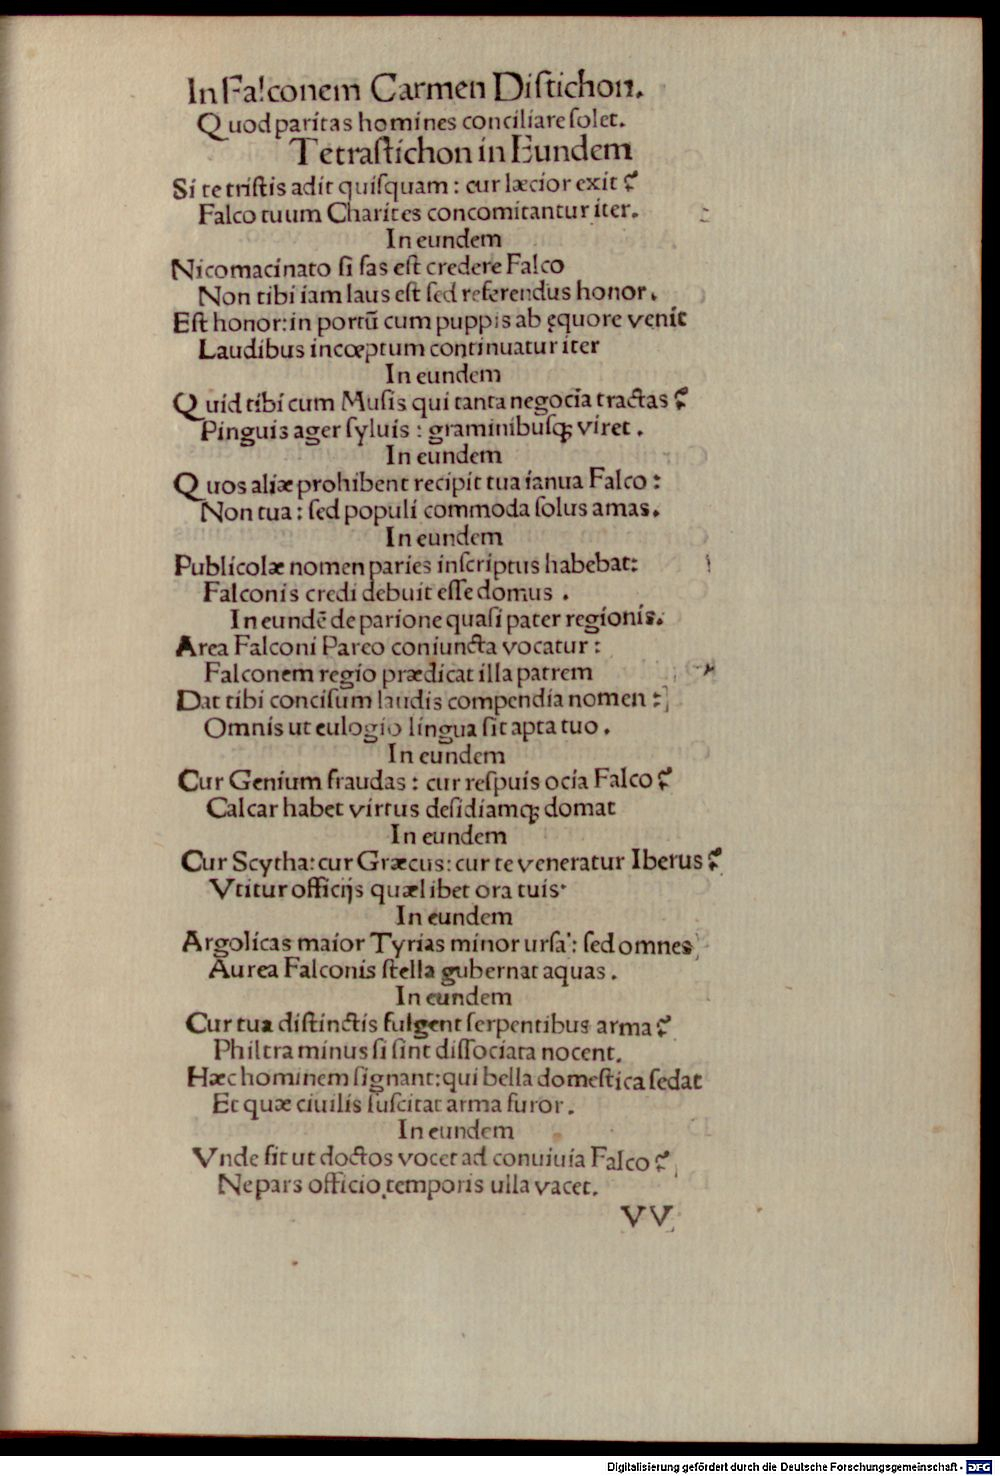 In Falconem Carmen Diſtichon.
Quod paritas homines conciliare ſolet.
Tetraſtichon in Eundem
Si te triſtis adit quiſquam : cur lætior exit ?
Falco tuum Charites concomitantur iter.
In eundem
Nicomacinato ſi fas eſt credere Falco
Non tibi iam laus eſt ſed referendus honor.
Eſt honor: in portū cum puppis ab ęquore venit
Laudibus incœptum continuatur iter
In eundem
Quid tibi cum Muſis qui tanta negocia tractas ?
Pinguis ager ſyluis : graminibuſq; viret .
In eundem
Quos aliæ prohibent recipit tua ianua Falco :
Non tua : ſed populi commoda ſolus amas.
In eundem
Publicolæ nomen paries inſcriptus habebat:
Falconis credi debuit eſſe domus .
In eundē de parione quaſi pater regionis.
Area Falconi Pareo coniuncta vocatur :
Falconem regio prædicat illa patrem
Dat tibi conciſum laudis compendia nomen :
Omnis ut eulogio lingua ſit apta tuo .
In eundem
Cur Genium fraudas : cur reſpuis ocia Falco ?
Calcar habet virtus deſidiamq; domat
In eundem
Cur Scytha: cur Græcus: cur te veneratur Iberus ?
Vtitur officijs quælibet ora tuis·
In eundem
Argolicas maior Tyrias minor urſa : ſed omnes
Aurea Falconis ſtella gubernat aquas .
In eundem
Cur tua diſtinctis fulgent ſerpentibus arma ?
Philtra minus ſi ſint diſſociata nocent.
Hæc hominem ſignant: qui bella domeſtica ſedat
Et quæ ciuilis ſuſcitat arma furor .
In eundem
Vnde fit ut doctos vocet ad conuiuia Falco ?
Ne pars officio temporis ulla vacet.
VV
Digitalisierung gefördert durch die Deutsche Forschungsgemeinschaft - DFG